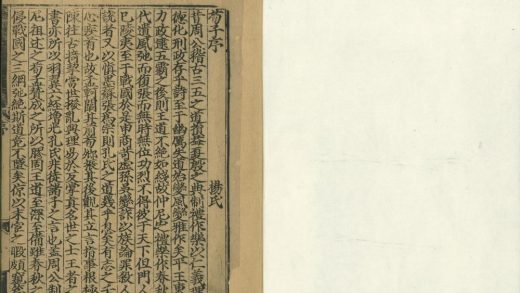 荀子序
楊氏
昔周公稽古三五之道損益夏殷之典制禮作樂以仁義理
德化刑政存乎詩至于幽厲失道始變風變雅作矣平王東
力政逮五霸之後則王道不絕如綫故仲尼定禮樂作春秋
代遺風弛而復張而無時無位功烈不得被于天下但門人
已陵夷至于戰國於是申商苛虐孫吳變詐以族論罪殺人
說者又以慎墨蘇張為宗則孔氏之道幾乎息矣有志之士
心疾首也故孟軻闡其前荀卿振其後觀其立言指事根極
陳往古掎挈當世撥亂興理易於反掌真名世之士王者之
書亦所以羽翼六經增光孔氏非徒諸子之言也蓋周公制
尼祖述之荀孟贊成之所以膠固王道至深至備雖春秋之
侵戰國之三綱弛絕斯道竟不墜矣倞以末宦之暇頗窺篇